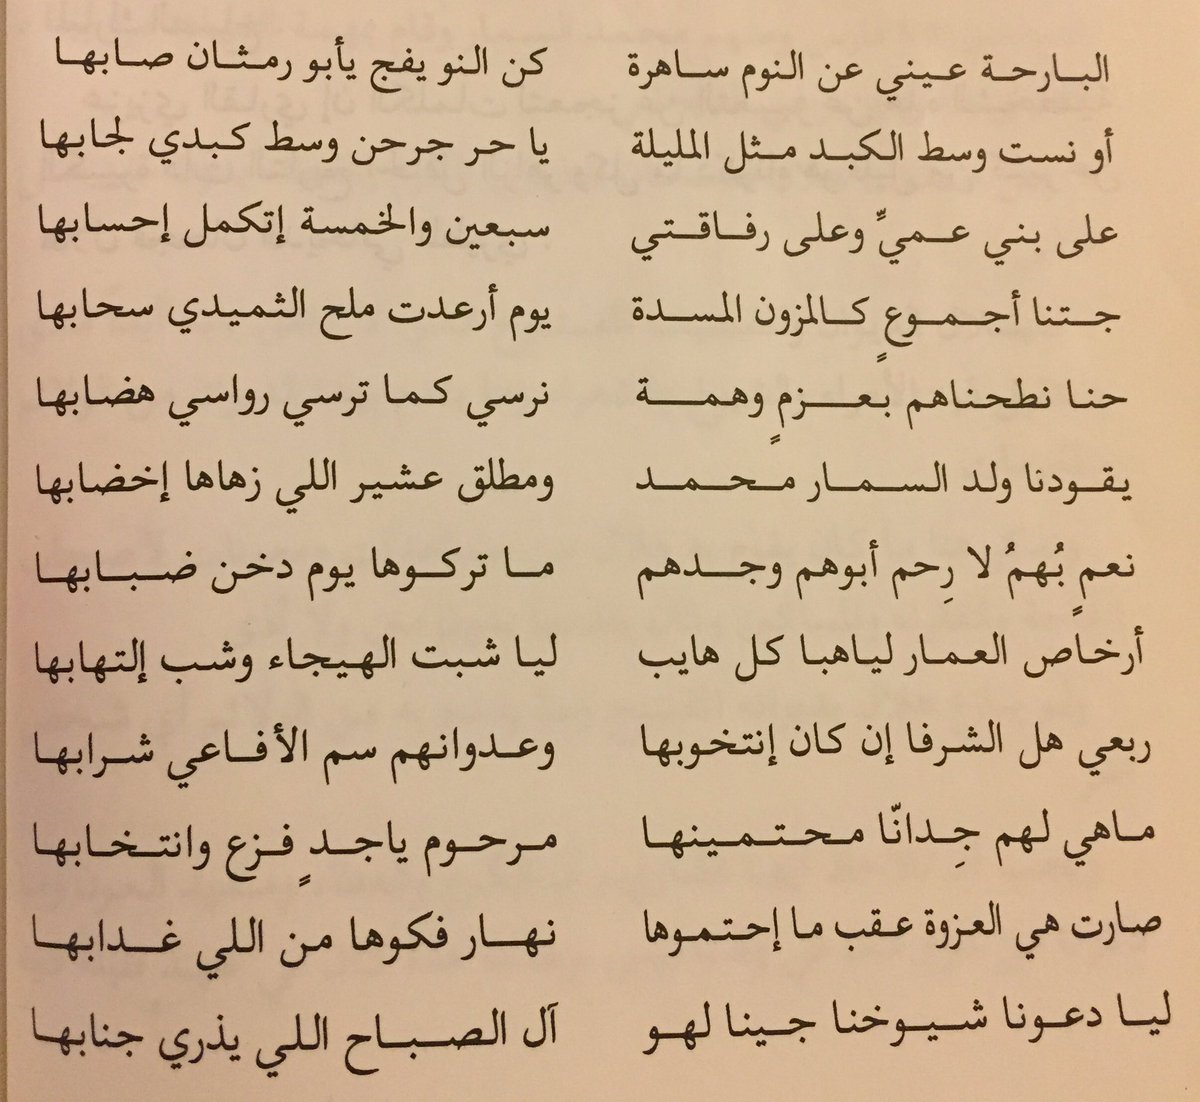 البارحة عيني عن النوم ساهرة كن النو يفج يأبو رمثان صابها
أو نست وسط الكبد مثل المليلة يا حر جرحن وسط كبدي لجابها
على بني عميِّ وعلى رفاقتي سبعين والخمسة إتكمل إحسابها
جتنا أجموعٍ كالمزون المسدة يوم أرعدت ملح الثميدي سحابها
حنا نطحناهم بعزمٍ وهمة نرسي كما ترسي رواسي هضابها
يقودنا ولد السمار محمد ومطلق عشير اللي زهاها إخضابها
نعمٍ بُهمُ لا رِحم أبوهم وجدهم ما تركوها يوم دخن ضبابها
أرخاص العمار لياهبا كل هايب ليا شبت الهيجاء وشب إلتهابها
ربعي هل الشرفا إن كان إنتخوبها وعدوانهم سم الأفاعي شرابها
ماهي لهم جِدانّا محتمينها مرحوم ياجدٍ فزع وانتخابها
صارت هي العزوة عقب ما إحتموها نهار فكوها من اللي غدابها
ليا دعونا شيوخنا جينا لهو آل الصباح اللي يذري جنابها